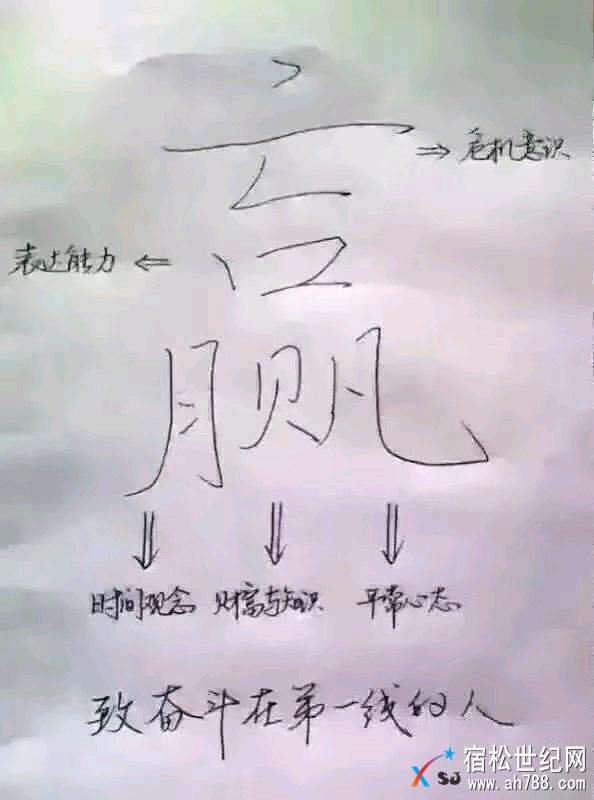 赢
危机意识
表达能力
时间观念 财富与知识 平常心态
致奋斗在第一线的人
SJ 宿松世纪网
www.ah788.com